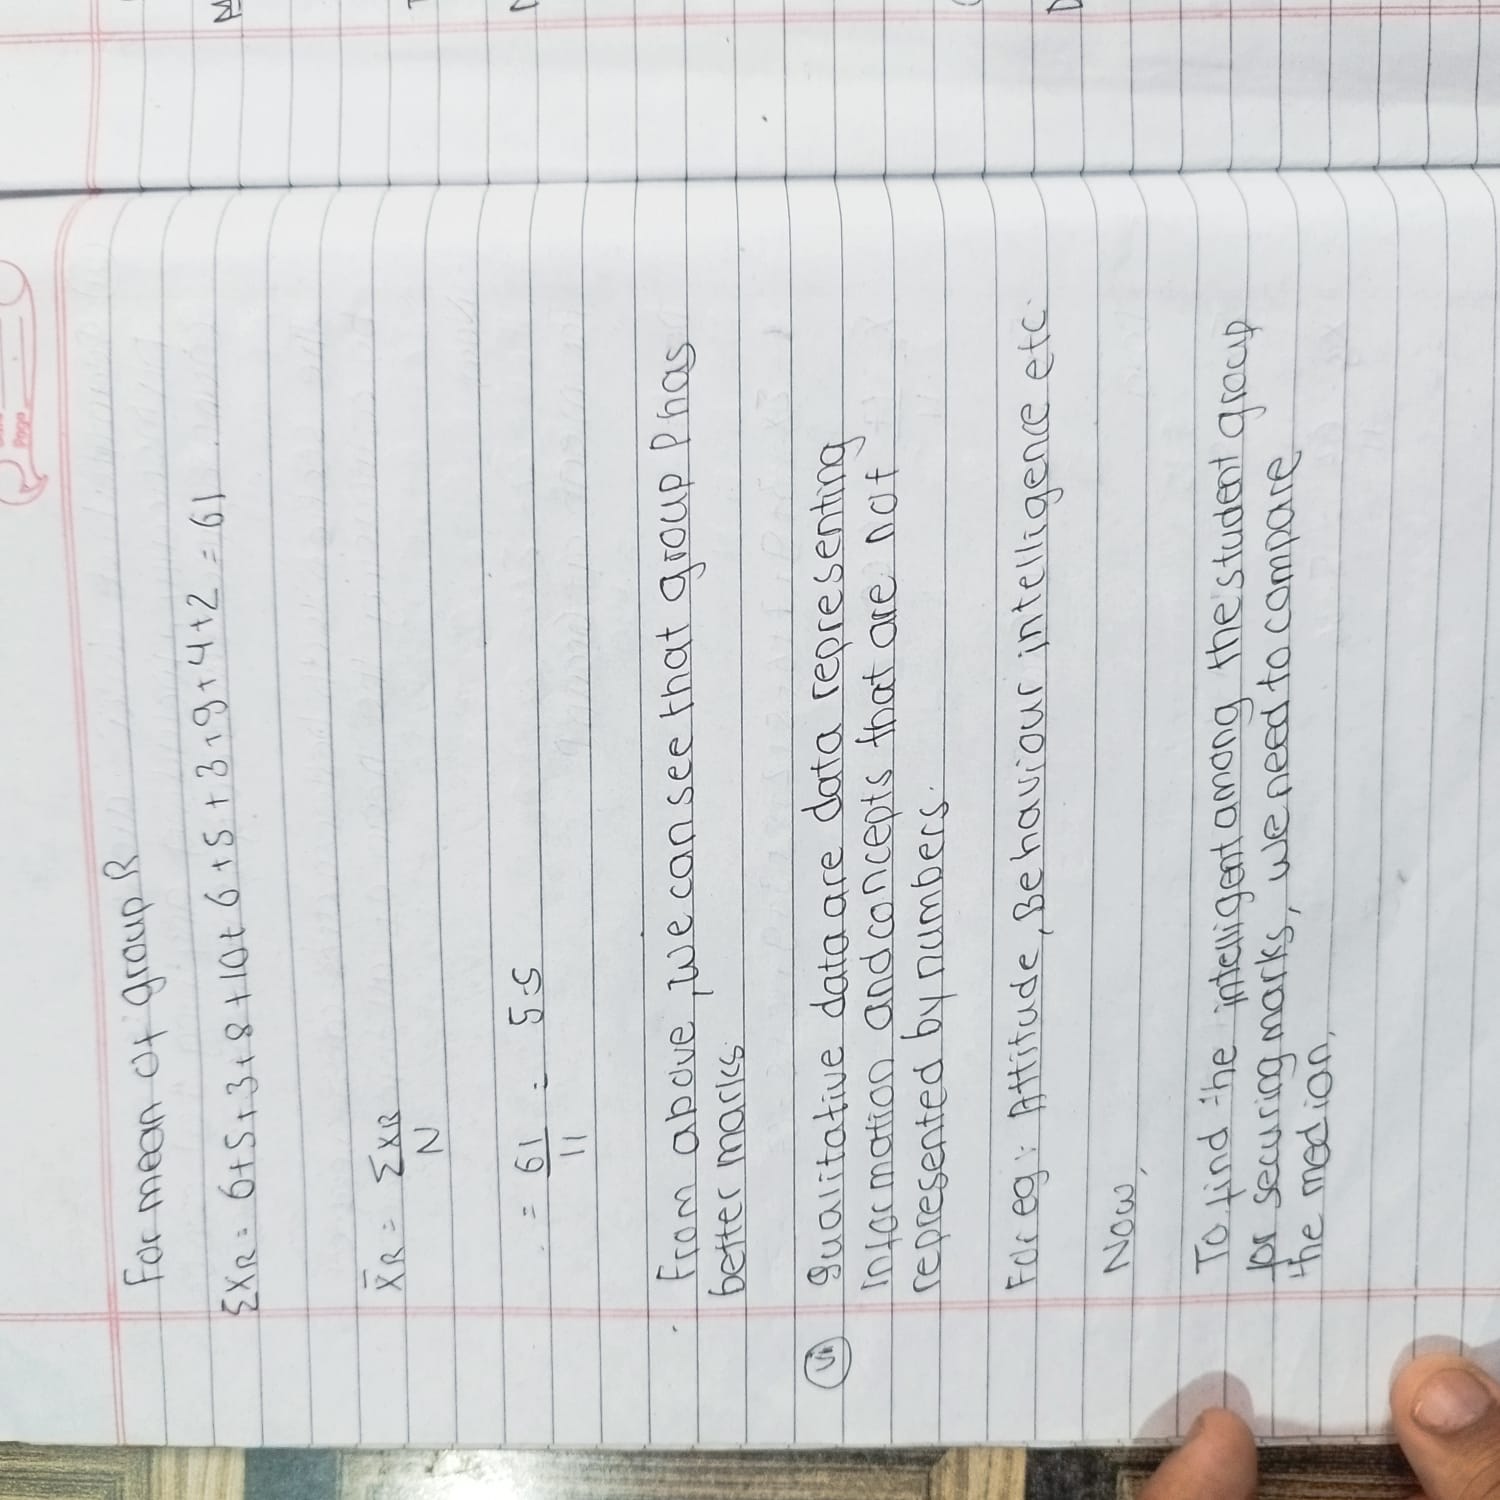 Page
For mean of group R
ΣXR = 6+5+3+8+10+6+5+3+9+4+2 = 61
X̄R = ΣXR
N
= 61 = 5.5
11
From above, we can see that group P has
better marks.
vii Qualitative data are data representing
information and concepts that are not
represented by numbers.
For eg: Attitude, Behaviour intelligence etc.
Now,
To find the intelligent among the student group
for securing marks, we need to compare
the median,